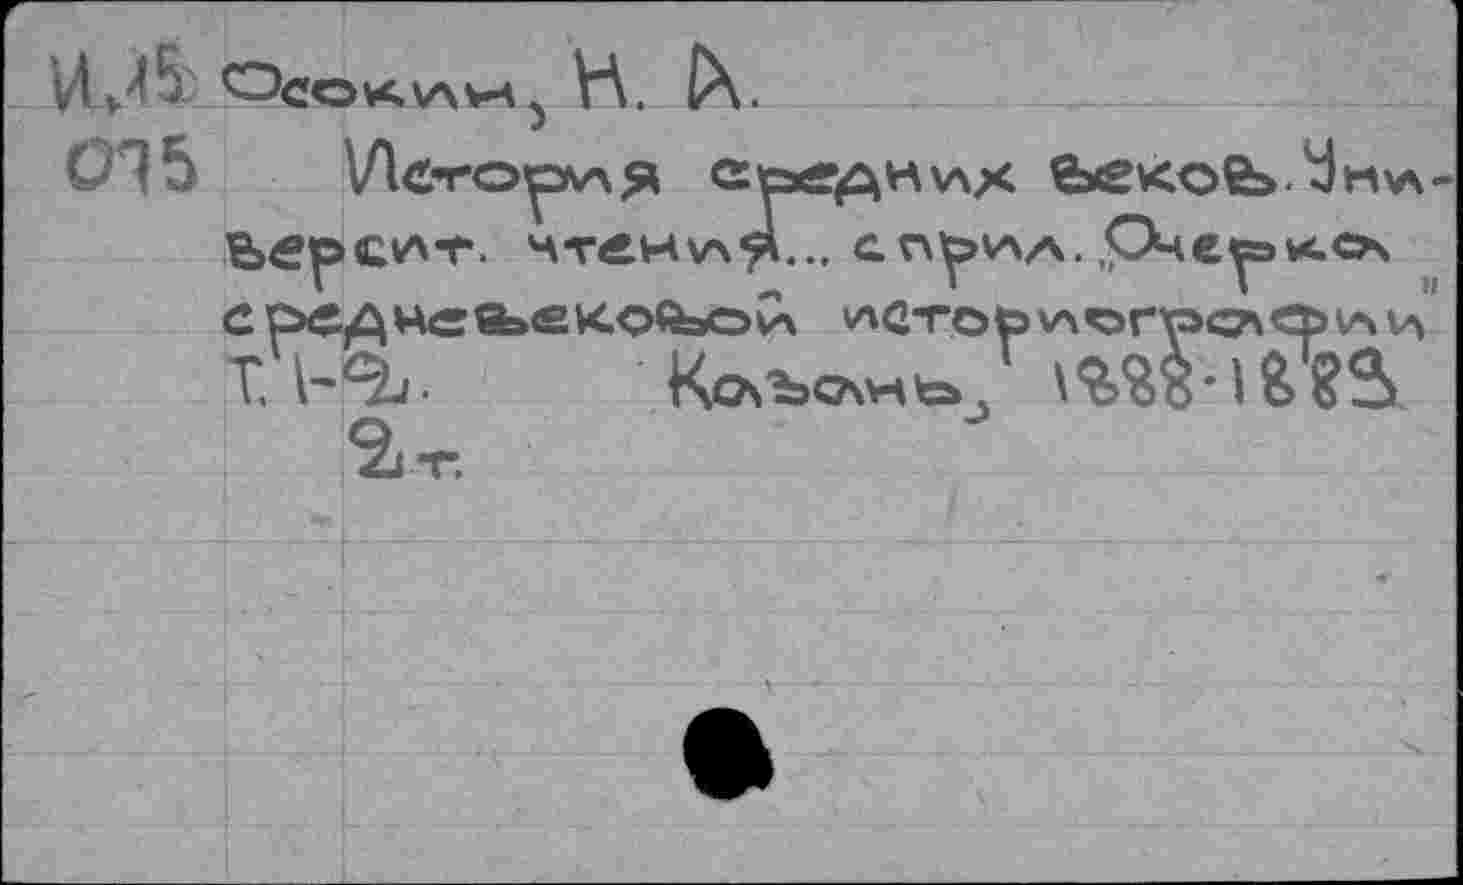 И,15 Осокин, Н. А.
О75 История средних веков. Уни-
версит. чтения... с прил. „Очерка
средневековой историографии"
Т. 1-2. Казань, 1888-1889
2 т.